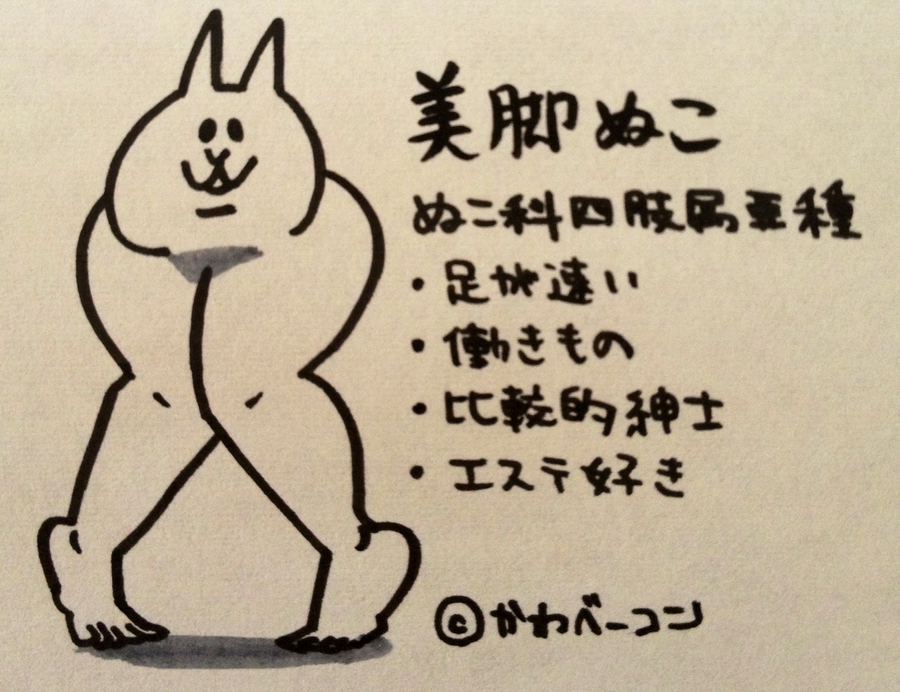 美脚ぬこ
ぬこ科四肢属亜種
・足が速い
・働きもの
・比較的紳士
・エステ好き
©かわべーコン